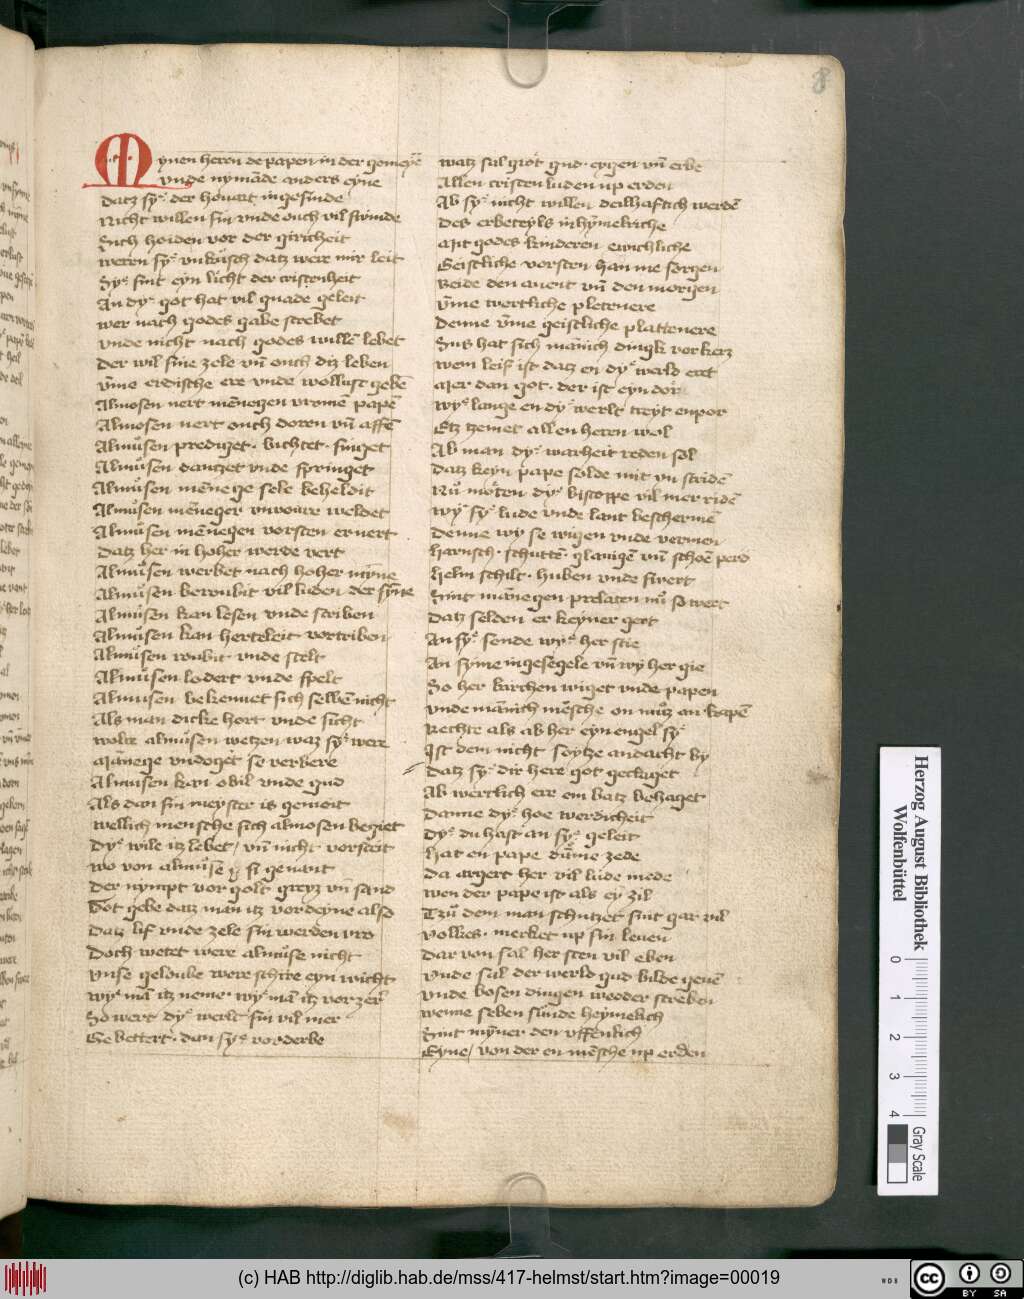 8
Mynen heren de papen in der gemeyne
Vnde nymāde anders eyne
Datz sy der houart ingesinde
Nicht willen sin vnde ouch vil swinde
Sich hoiden vor der giricheit
weren sy vnkusch datz were mir leit
Sy sint eyn licht der cristenheit
An dy got hat vil gnade geleit
wer nach godes gabe strebet
vnde nicht nach godes willē lebet
Der wil sine zele vn̄ ouch diz leben
vm̄e erdische ere vnde wollust gebē
Almosen nert mēnegen vromē papē
Almosen nert ouch doren vn̄ affē
Almůsen prediget · bichtet · singet
Almůsen dantzet vnde springet
Almůsen mēnege sele beheldit
Almůsen mēneger vnvoure weldet
Almůsen mēnegen vorsten ernert
Datz her in hoher werde vert
Almůsen werbet nach hoher mȳne
Almůsen beroubit vil luden der sȳne
Almůsen kan lesen vnde scriben
Almůsen kan herteleit vortriben
Almůsen roubit vnde stelt
Almůsen lodert vnde spelt
Almusen bekennet sich selbē nicht
Als man dicke hort vnde sicht
wolte almůsen wetzen waz sy were
Mānege vndoget se verbere
Almůsen kan obil vnde gud
Als dan sin meyster is gemoit
wellich mensche sich almosen begiet
Dy wile itz lebet / vn̄ nicht vorsteit
wo von almůsē si genant
Der nympt vor golt greyz vn̄ sand
Got gebe datz man itz vordeyne also
Datz lif vnde zele sin werden vro
Doch wetet were almůse nicht
vnse geloube were schire eyn wicht
wy mā itz neme · wy mā itz vorzer
So wert dy werlt sin vil mer
Gebettert · dan sy vorderbe
watz sal groť gud · eygen vn̄ erbe
Allen cristen luden up erden
Ab sy nicht willen deilhaftich werdē
Des erbeteyls in hȳmelriche
Mit godes kinderen ewichliche
Geistliche vorsten han me sorgen
Beide den auent vn̄ den morgen
vm̄e wertliche pletenere
Denne vm̄e geistliche plattenere
Sus hat sich mānich dingk vorkerz
wem leif ist datz en dy werld eret
Mer dan got · der ist eyn dor
wy lange en dy werlt treyt enpor
Etz tzemet allen heren wol
Ab man dy warheit reden sol
Datz keyn pape solde mit vn stridē
Nů moťen dy biscoppe vil mer ridē
wy sy lude vnde lant beschermē
Denne wy se wigen vnde vermen
harnsch · schuttē · glauigē vn̄ schoē perd
helm schilt · huben vnde swert
Sint mānegen prelaten nů so wert
Datz selden er keyner gert
An sy sende wy her stie
An syme ingesegele vn̄ wy her gie
So her kirchen wiget vnde papen
vnde mānich mēsche on můz an kapē
Rechte als ab her eyn engel sy
Ist dem nicht soytze andacht by
Datz sy dir here got geclaget
Ab wertlich ere em batz behaget
Danne dy hoe werdicheit
Dy du hast an sy geleit
hat en pape dūme zede
Da argert her vil lude mede
wen der pape ist als ey zil
Tzů dem man schutzet sint gar vil
volkes · merket up sin leuen
Dar von sal her sten vil eben
vnde sal der werld gud bilde geuē
vnde bosen dingen weder streben
wenne seben sunde heymelich
Sint myner den uffenlich
Eyne / von der en mēsche up erden
Herzog August Bibliothek
Wolfenbüttel
0 1 2 3 4
Gray Scale
(c) HAB http://diglib.hab.de/mss/417-helmst/start.htm?image=00019
WDB
cc BY SA